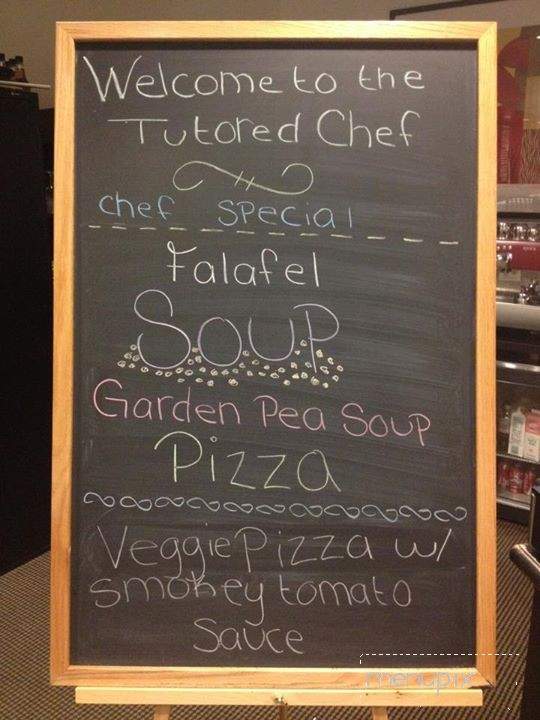 Welcome to the
Tutored Chef
chef special
Falafel
Soup
Garden Pea Soup
Pizza
Veggie Pizza w/
smokey tomato
sauce
menupix